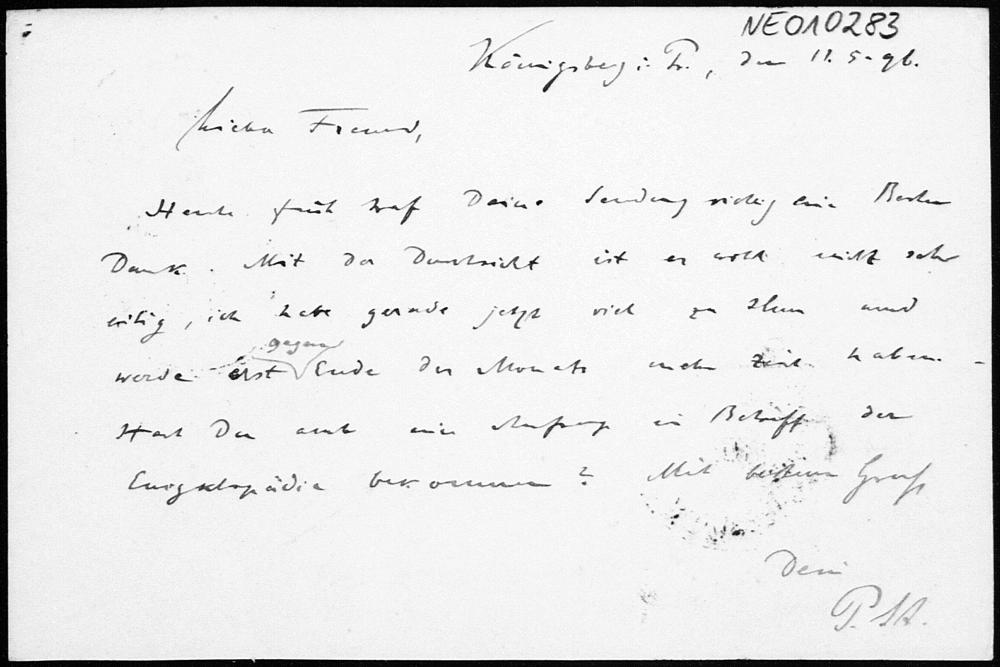 NE010283
Königsberg i. Pr., den 11. 5. 96.
Lieber Freund,
Heute früh traf Deine Sendung richtig ein. Besten
Dank. Mit der Durchsicht ist es wohl nicht sehr
eilig, ich habe gerade jetzt viel zu thun und
werde erst gegen Ende des Monats mehr Zeit haben. -
Hast Du auch eine Anfrage in Betreff der
Encyklopädie bekommen? Mit bestem Gruß
Dein
P. St.